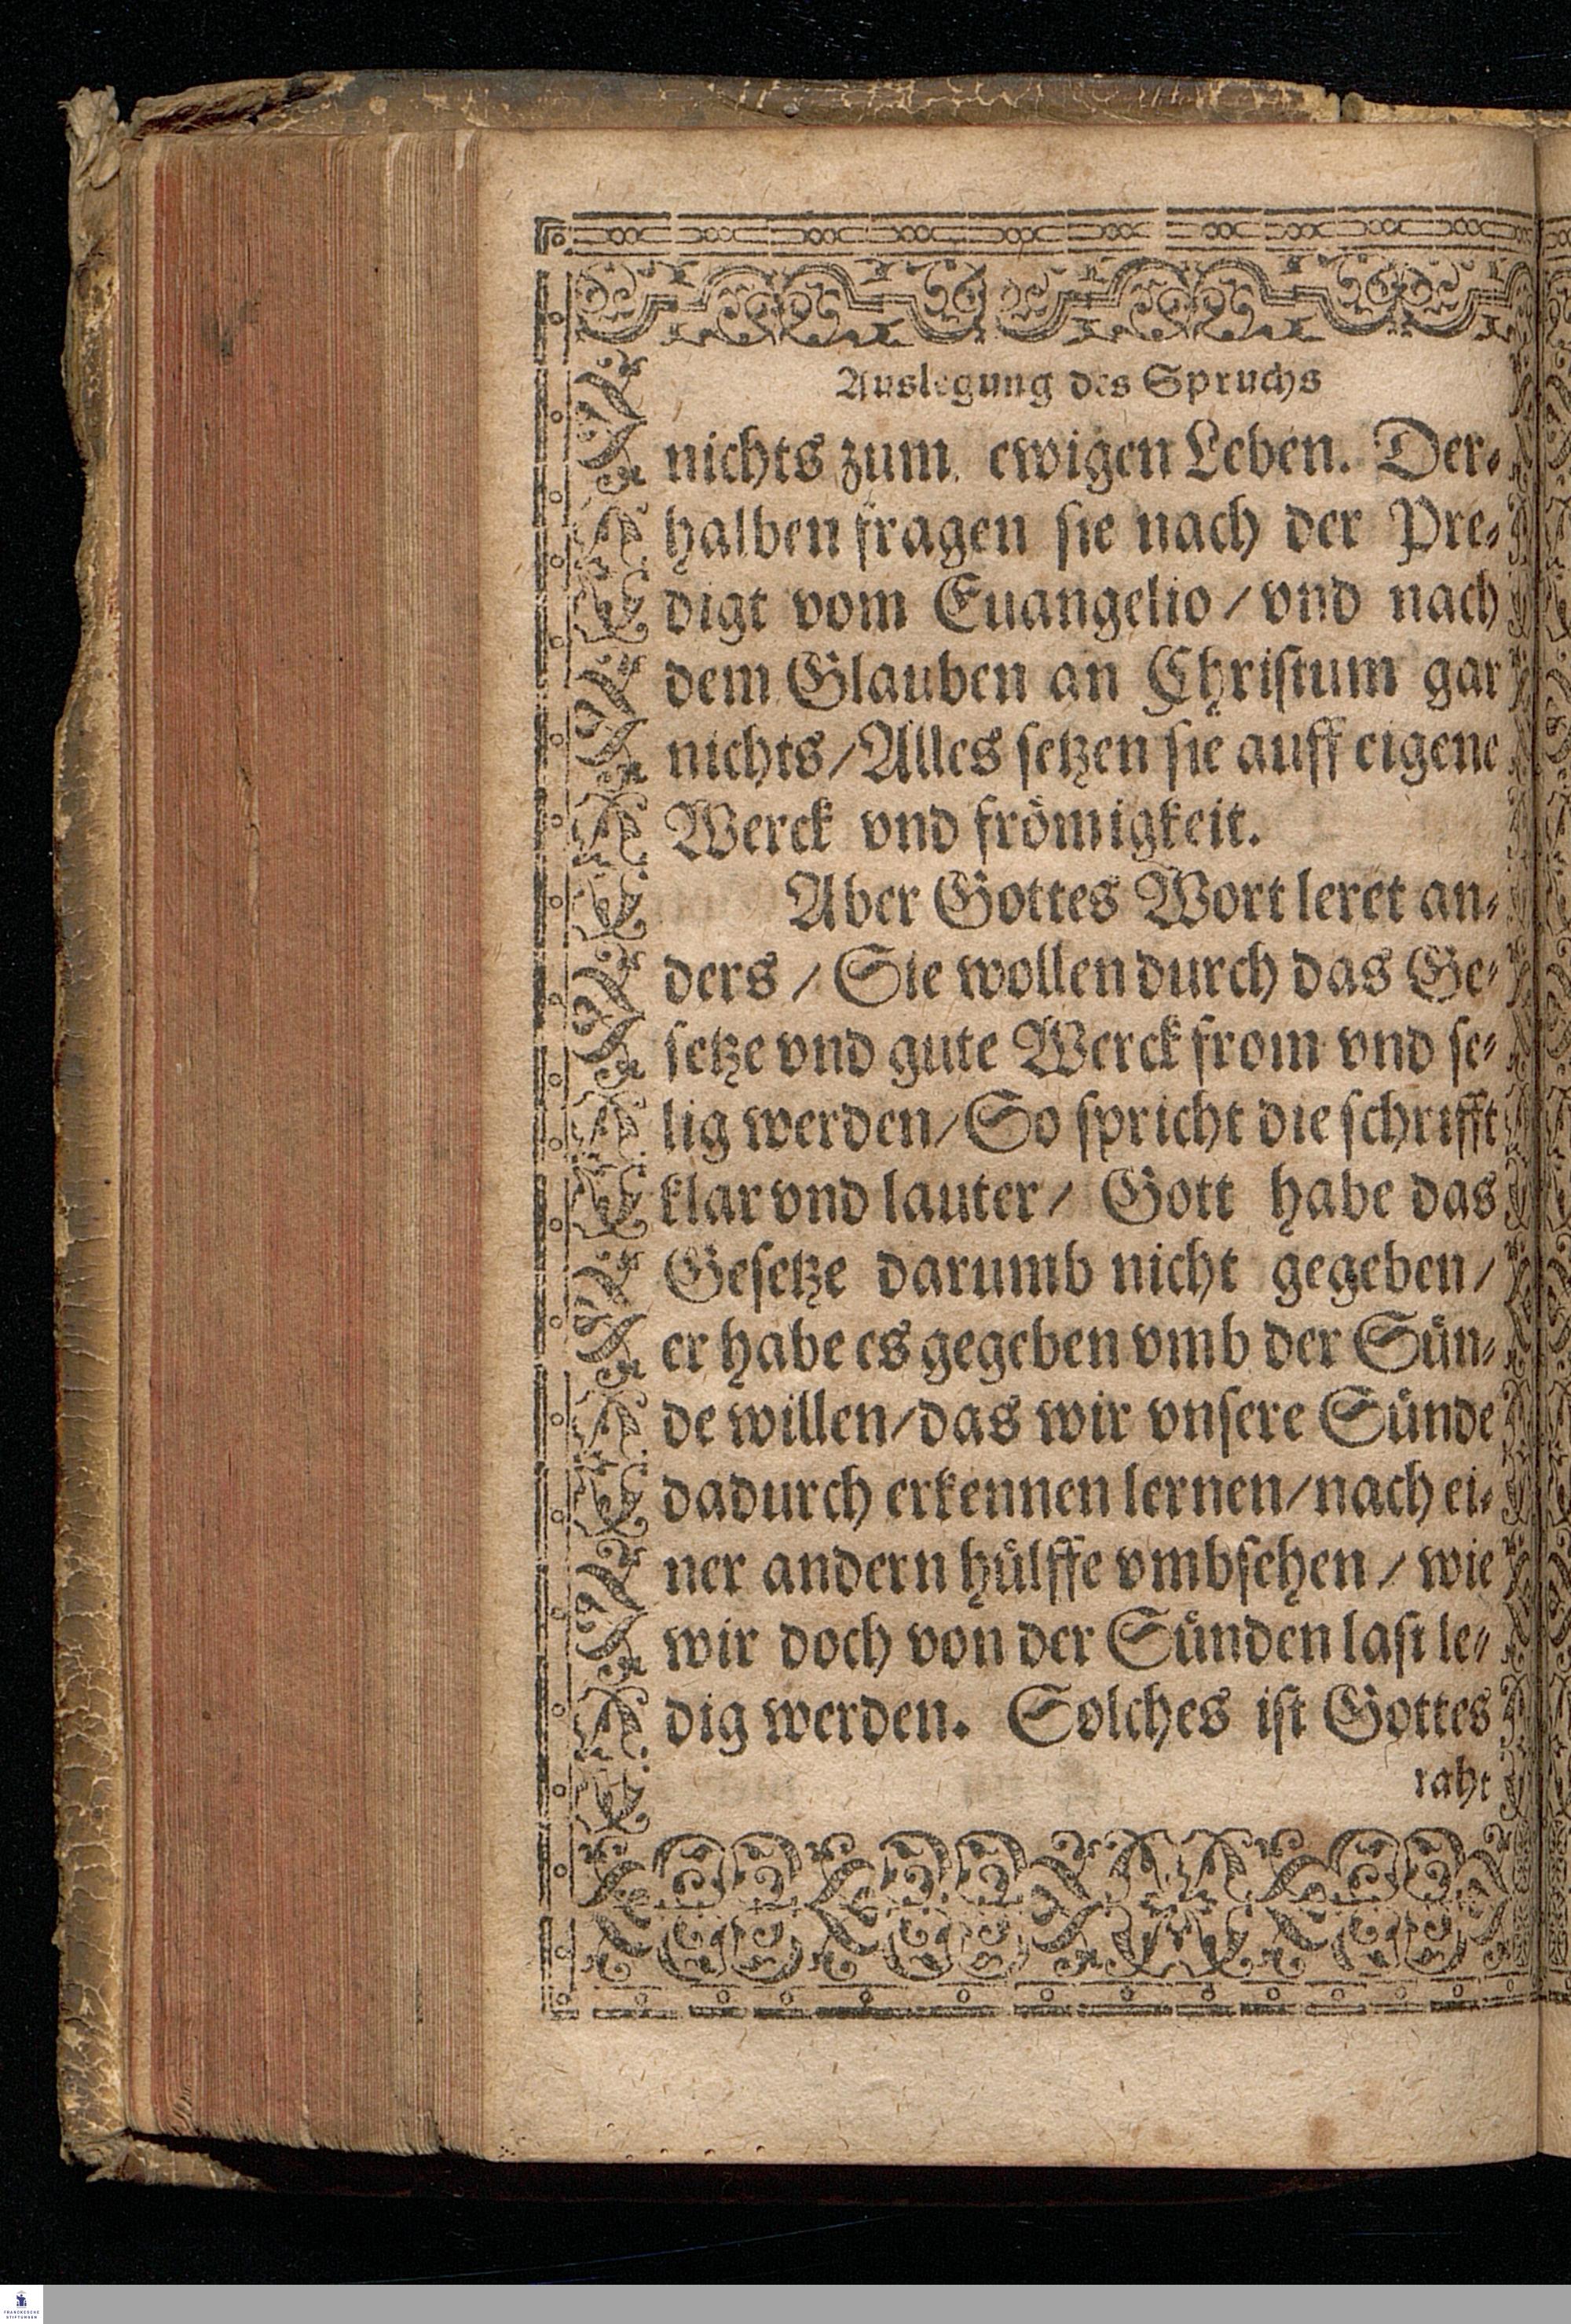 Auslegung des Spruchs
nichts zum ewigen Leben. Der⸗
halben fragen sie nach der Pre⸗
digt vom Euangelio / vnd nach
dem Glauben an Christum gar
nichts / Alles setzen sie auff eigene
Werck vnd frömigkeit.
Aber Gottes Wort leret an⸗
ders / Sie wollen durch das Ge⸗
setze vnd gute Werck from vnd se⸗
lig werden / So spricht die schrifft
klar vnd lauter / Gott habe das
Gesetze darumb nicht gegeben /
er habe es gegeben vmb der Sün⸗
de willen / das wir vnsere Sünde
dadurch erkennen lernen / nach ei⸗
ner andern hülffe vmbsehen / wie
wir doch von der Sünden last le⸗
dig werden. Solches ist Gottes
raht
FRANCKESCHE
STIFTUNGEN